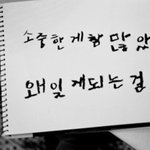 소중한 게 참 많았
왜 잊게 되는 걸